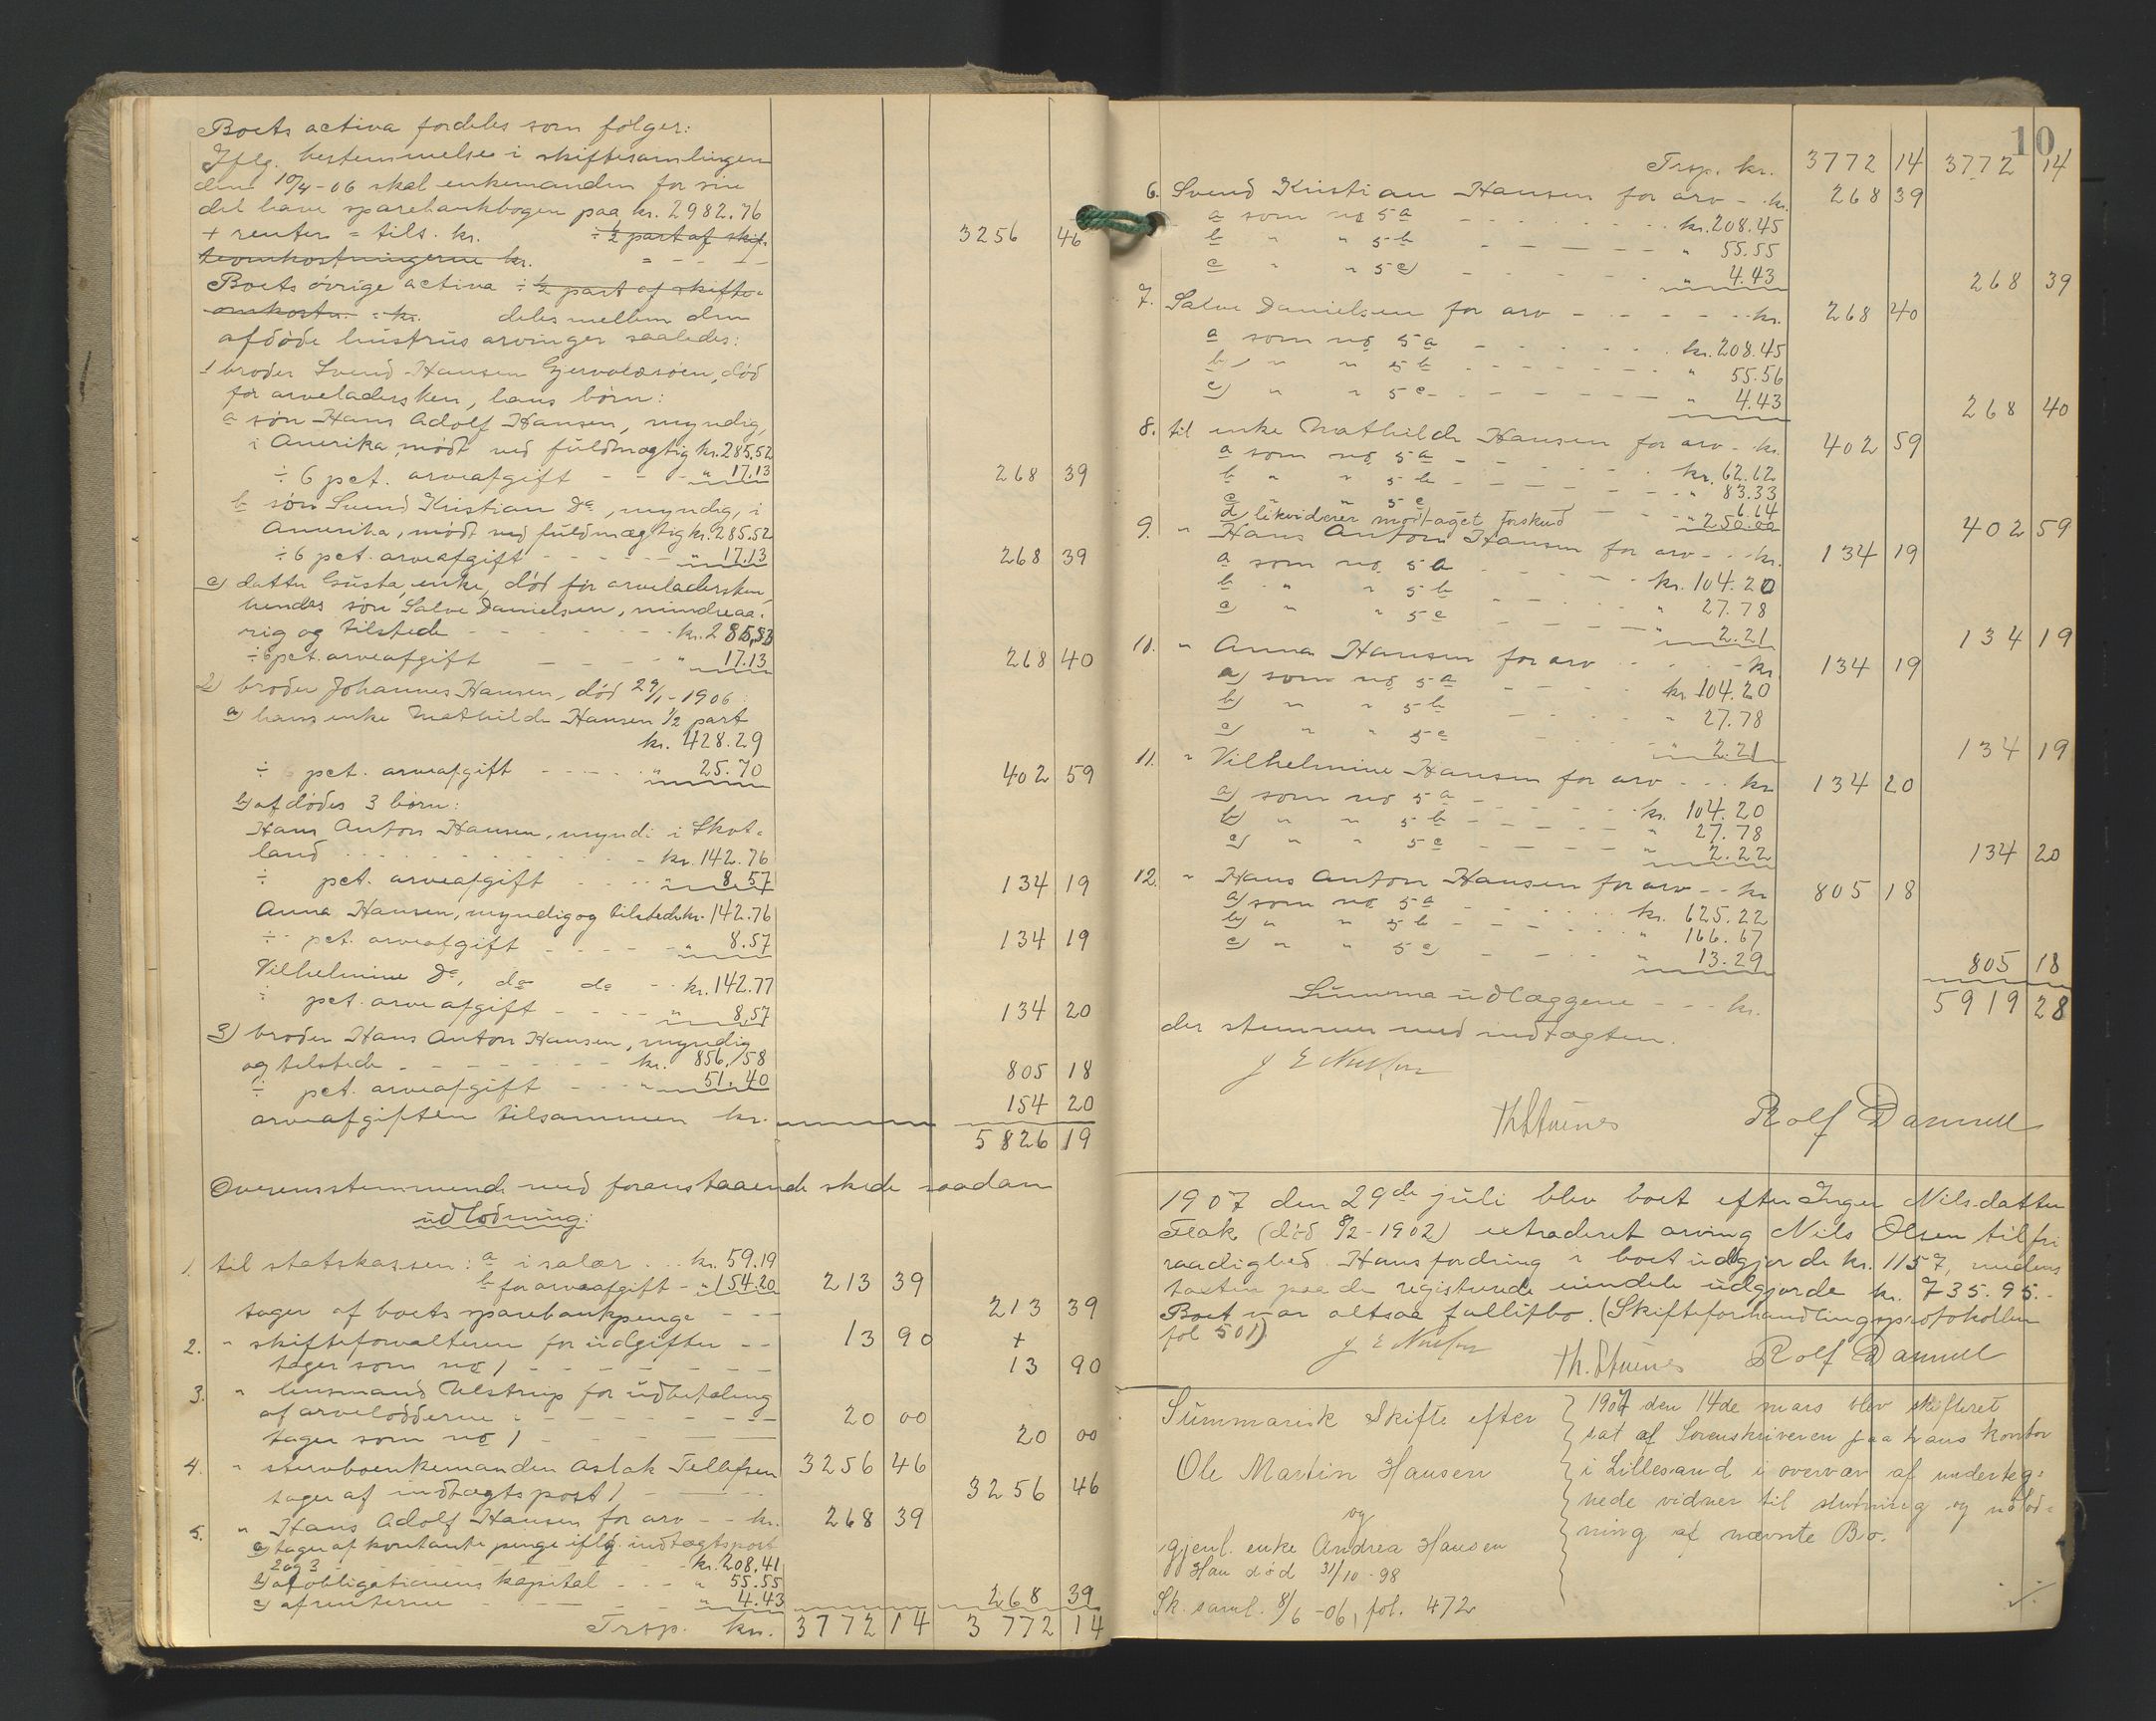 Boets activa fordeles som følger:
Iflg. bestemmelse i skiftesamlingen
den 10/4-06 skal enkemanden for sin
del have sparebankbogen paa kr. 2982.76
+ renter = tils. kr. ÷ ½ part af skif- 3256 46
teomkostningerne kr. =
Boets øvrige activa ÷ ½ part af skifte-
omkostn. = kr. deles mellem den
afdøde hustrus arvinger saaledes:
1 broder Svend Hansen død
før arveladersken, hans børn:
a søn Hans Adolf Hansen, myndig,
i Amerika, mødt ved fuldmægtig kr. 285.52
÷ 6 pct. arveafgift - - - " 17.13 268 39
b søn Svend Kristian do, myndig, i
Amerika, mødt ved fuldmægtig kr. 285.52
÷ 6 pct. arveafgift - - - " 17.13 268 39
c) datter Gusta, enke, død før arveladersken,
hendes søn Salve Danielsen, mindreaa-
rig og tilstede - - - kr. 285.53
÷ 6 pct. arveafgift - - - " 17.13 268 40
2) broder Johannes Hansen, død 29/1-1906
a) hans enke Mathilde Hansen ½ part
kr. 428.29
÷ 6 pct. arveafgift - - - " 25.70 402 59
b) afdødes 3 børn:
Hans Anton Hansen, myndi i Skot-
land - - - kr. 142.76
÷ pct. arveafgift - - - " 8.57 134 19
Anna Hansen, myndig og tilstede kr. 142.76
÷ pct. arveafgift - - - " 8.57 134 19
Vilhelmine do, do do - kr. 142.77
÷ pct. arveafgift - - - " 8.57 134 20
3) broder Hans Anton Hansen, myndig
og tilstede - - - kr. 856.58
÷ pct. arveafgift - - - " 51.40 805 18
arveafgiften tilsammen kr. 154 20
5826 19
Overensstemmende med foranstaaende skede saadan
udlodning:
1. til statskassen: a i salær - - kr. 59.19
b for arveafgift - " 154.20 213 39
tager af boets sparebankpenge - - - 213 39
2. " skifteforvalteren for udgifter - - 13 90 +
tager som no 1 - - - 13 90
3. " lensmand Ulstrup for udbetaling
af arvelodderne - - - 20 00
tager som no 1 - - - 20 00
4. " stervboenkemanden Aslak Tellefsen 3256 46
tager af indtægtspost 1 - - - 3256 46
5. " Hans Adolf Hansen for arv - - kr. 268 39
a) tager af kontante penge iflg. indtægtspost
2 og 3 - - - kr. 208.41
b) af obligationens kapital - - - " 55.55
c) af renterne - - - " 4.43 268 39
Trsp. kr. 3772 14 3772 14
10
Trsp. kr. 3772 14 3772 14
6. Svend Kristian Hansen for arv - kr. 268 39
a som no 5 a - - - kr. 208.45
b " " 5 b - - - " 55.55
c " " 5 c) - - - " 4.43 268 39
7. Salve Danielsen for arv - - - kr. 268 40
a som no 5 a - - - kr. 208.45
b) " " 5 b - - - " 55.56
c) " " 5 c - - - " 4.43 268 40
8. til enke Mathilde Hansen for arv - kr. 402 59
a som no 5 a - - - kr. 62.62
b " " 5 b - - - " 83.33
c " " 5 c - - - 6.64
d) likviderer modtaget forskud " 250.00 402 59
9. " Hans Anton Hansen for arv - - kr. 134 19
a som no. 5 a - - - kr. 104.20
b " " 5 b - - - " 27.78
c " " 5 c - - - " 2.21 134 19
10. " Anna Hansen for arv - - - kr. 134 19
a) som no. 5 a - - - kr. 104.20
b) " " 5 b - - - " 27.78
c) " " 5 c - - - " 2.21 134 19
11. " Vilhelmine Hansen for arv - - - kr. 134 20
a) som no 5 a - - - kr. 104.20
b) " " 5 b - - - " 27.78
c) " " 5 c - - - " 2.22 134 20
12. " Hans Anton Hansen for arv - - kr 805 18
a) som no 5 a - - - kr. 625.22
b) " " 5 b - - - " 166.67
c) " " 5 c) - - - " 13.29 805 18
Summa udlæggene - - - kr. 5919 28
der stemmer med indtægten.
Rolf Dannell
1907 den 29de juli blev boet efter Inger Nilsdatter
Flak (død 8/2-1902) extraderet arving Nils Olsen til fri
raadighed. Hans fordring i boet udgjorde kr. 1157, medens
taxten paa de registrerede eiendele udgjorde kr. 735.95.-
Boet var altsaa fallitbo. (Skifteforhandlingsprotokollen
fol 501)
Rolf Dannell
Summarisk Skifte efter
Ole Martin Hansen
og
gjenl. enke Andrea Hansen
Han død 31/10-98
Sk. saml. 8/6-06, fol. 472
1907 den 14de mars blev skifteret
sat af Sorenskriveren paa hans kontor
i Lillesand i overvær af underteg-
nede vidner til slutning og udlod-
ning af nævnte Bo.